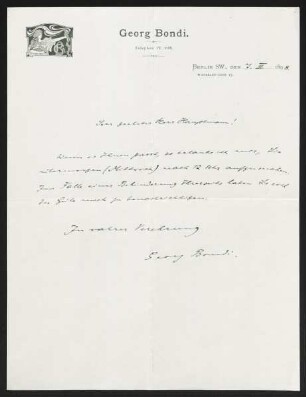 Georg Bondi.
Telephon IV,
Berlin SW., den 7. III.
Sehr geehrter Herr Hauptmann!
Wenn es Ihnen passt, so erlaube ich mir, Sie
(Mittwoch) nach 12 Uhr aufzusuchen.
Im Falle einer Behinderung Ihrerseits haben Sie wohl
die Güte mich zu benachrichtigen.
In wahrer Verehrung
Georg Bondi.